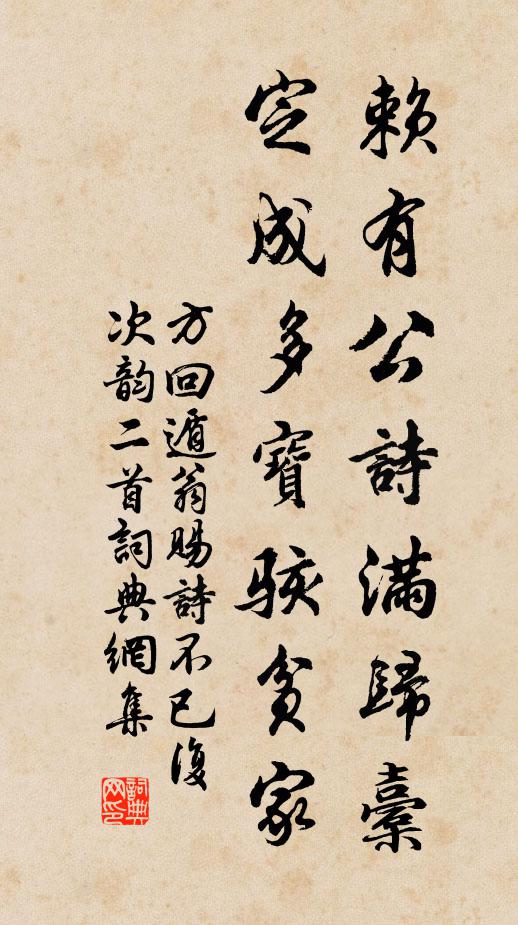 賴有公詩滿歸橐
定成多寶駭貧家
方回遁翁賜詩不已復
次韵二首詞典網集
詞典网印